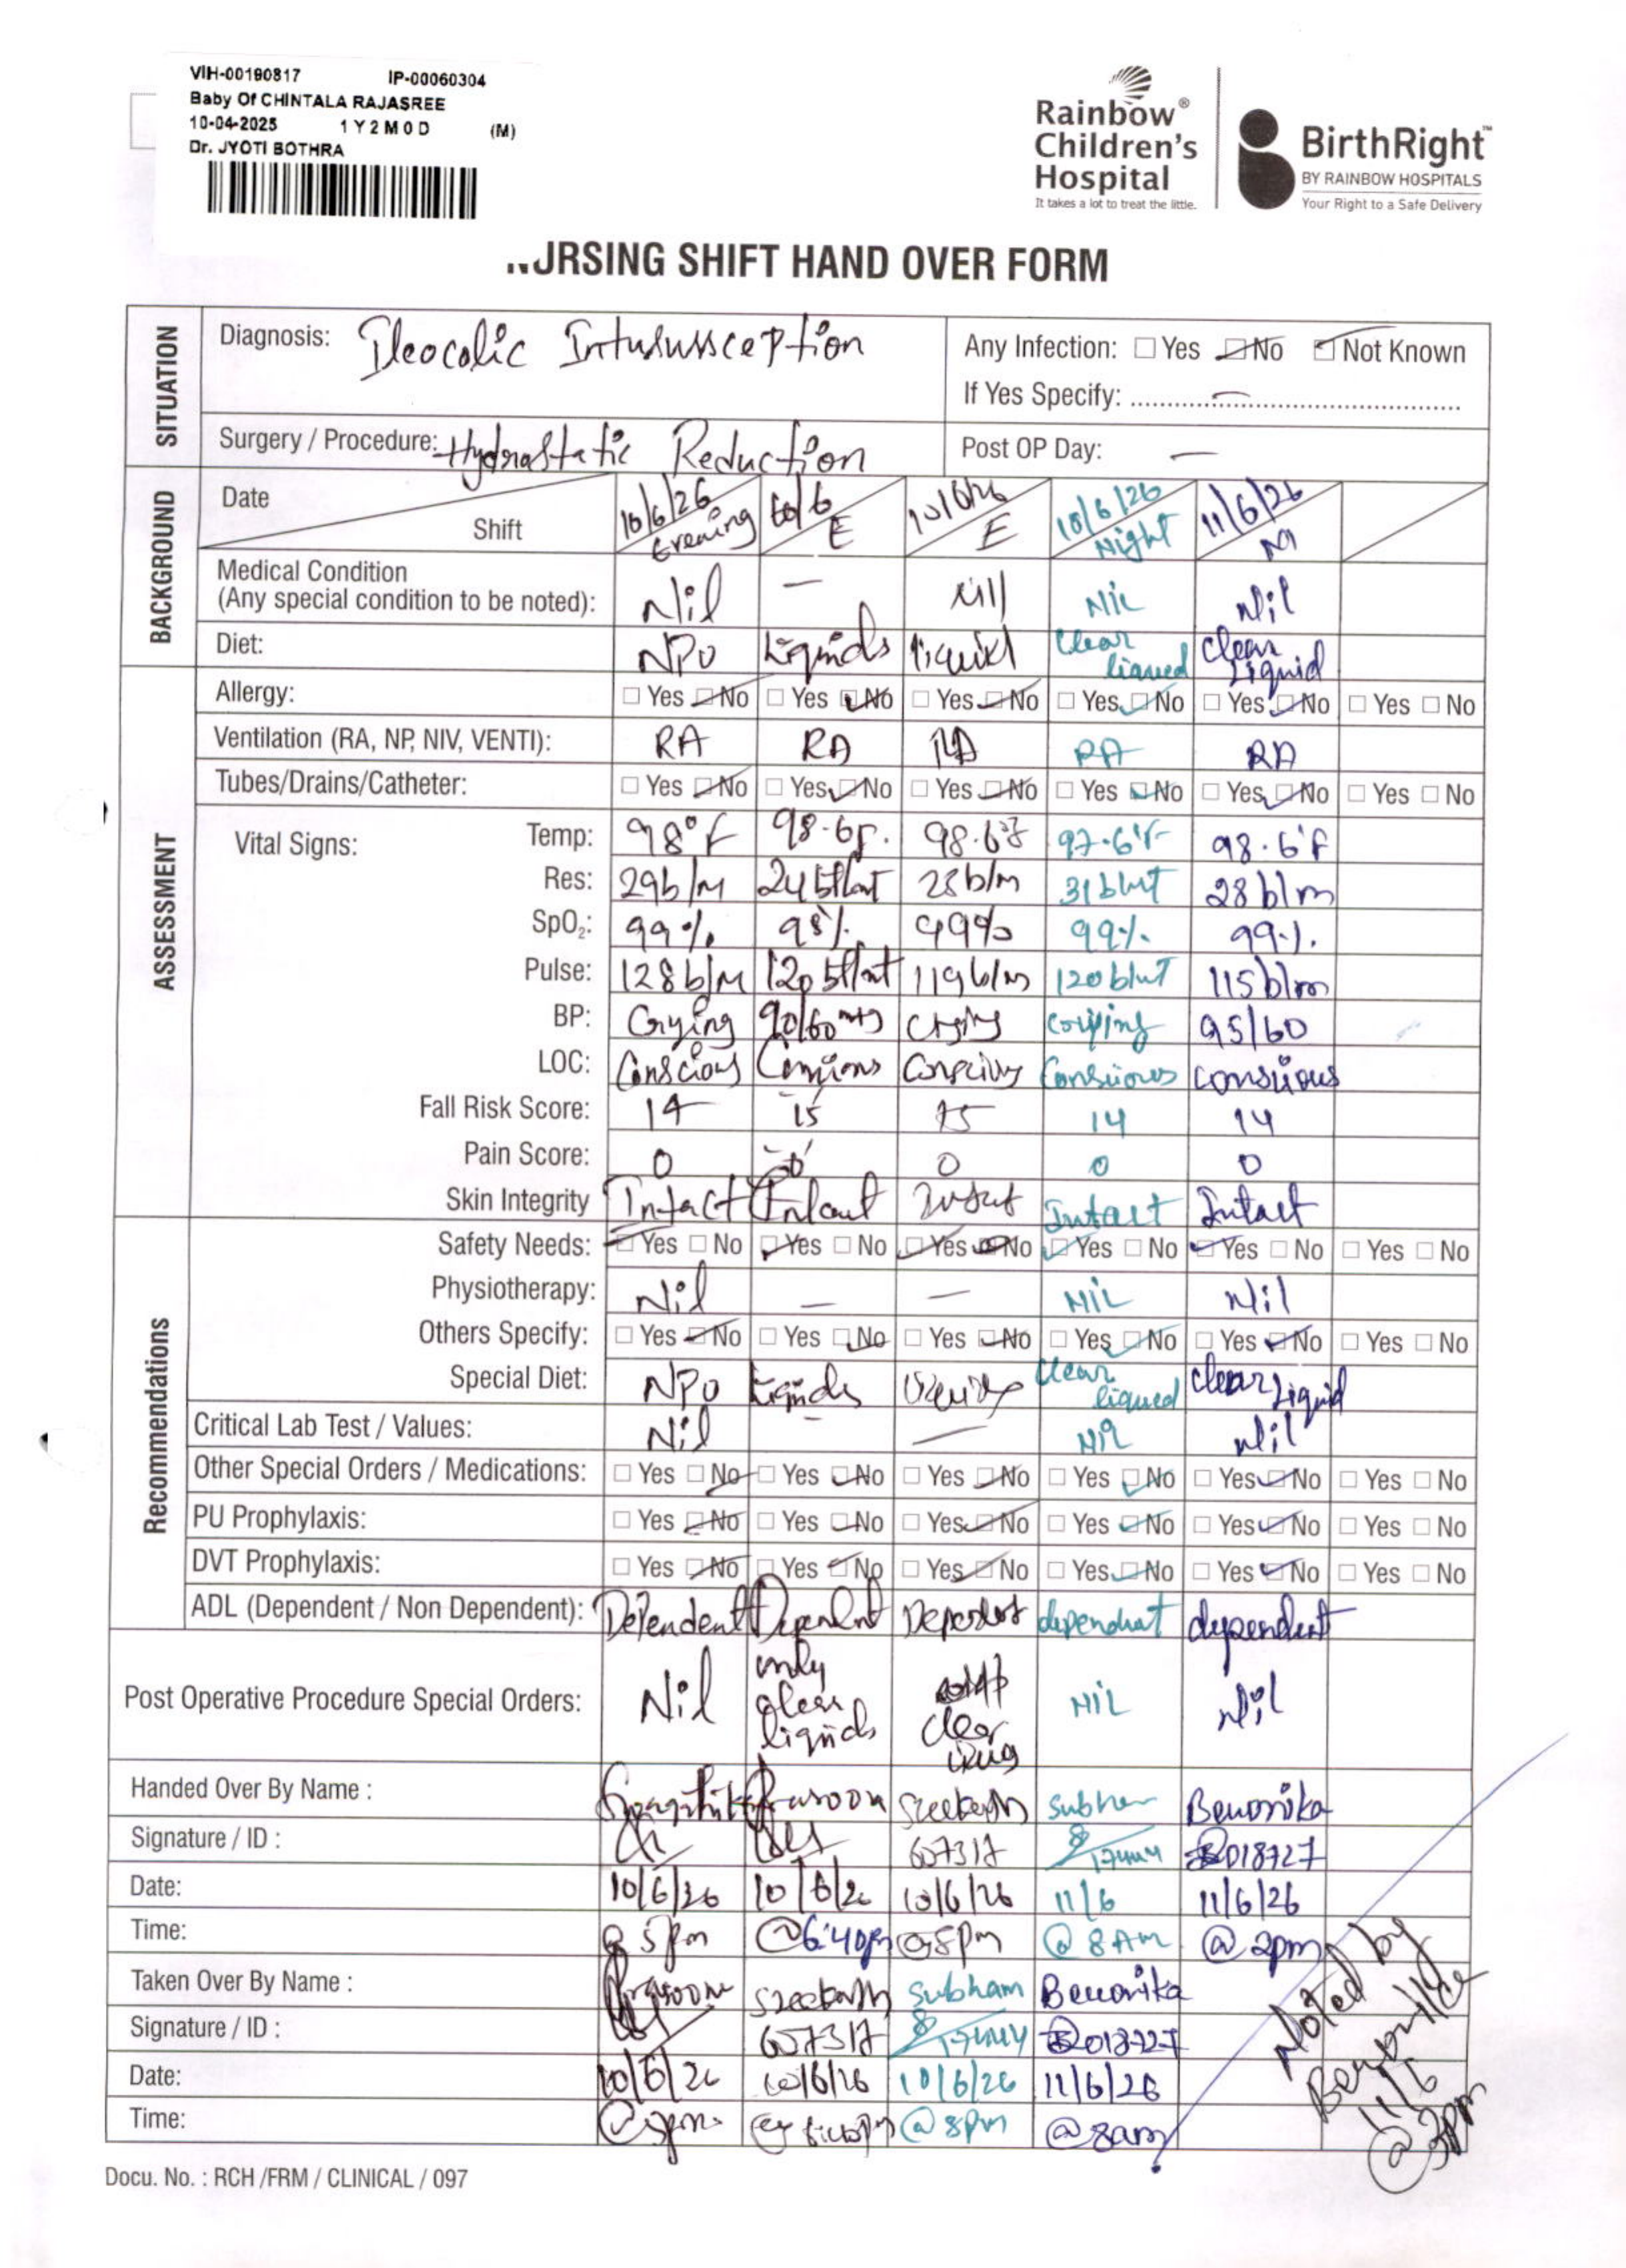 VIH-00190817 IP-00060304
Baby Of CHINTALA RAJASREE
10-04-2025 1 Y 2 M 0 D (M)
Dr. JYOTI BOTHRA
Rainbow® Children's Hospital
It takes a lot to treat the little.
BirthRight™
BY RAINBOW HOSPITALS
Your Right to a Safe Delivery
URSING SHIFT HAND OVER FORM
SITUATION
Diagnosis: Ileocolic Intususception
Any Infection: Yes No Not Known
If Yes Specify: –
Surgery / Procedure: Hydrostatic Reduction
Post OP Day: –
BACKGROUND
Date 10/6/26 10/6 10/6/26 10/6/26 11/6/26
Shift Evening E E Night M
Medical Condition
(Any special condition to be noted): Nil – Nill Nil Nil
Diet: NPO Liquids liquid Clear liqued Clear Liquid
ASSESSMENT
Allergy: Yes No Yes No Yes No Yes No Yes No Yes No
Ventilation (RA, NP, NIV, VENTI): RA RA RA RA RA
Tubes/Drains/Catheter: Yes No Yes No Yes No Yes No Yes No Yes No
Vital Signs:
Temp: 98°F 98.6F. 98.6°F 97.6°F 98.6°F
Res: 29b/M 24 28b/m 31 28 b/m
SpO₂: 99% 98% 99% 99% 99%
Pulse: 128 b/M 120 119b/m 120 115b/m
BP: Crying 90/60 Crying 95/60
LOC: Conscious Conscious Conscious Conscious consious
Fall Risk Score: 14 15 15 14 14
Pain Score: 0 0 0 0 0
Skin Integrity Intact Intact Intact Intact Intact
Recommendations
Safety Needs: Yes No Yes No Yes No Yes No Yes No Yes No
Physiotherapy: Nil – – NIL Nil
Others Specify: Yes No Yes No Yes No Yes No Yes No Yes No
Special Diet: NPO Liquids Clear liqued Clear Liquid
Critical Lab Test / Values: Nil – – Nil Nil
Other Special Orders / Medications: Yes No Yes No Yes No Yes No Yes No Yes No
PU Prophylaxis: Yes No Yes No Yes No Yes No Yes No Yes No
DVT Prophylaxis: Yes No Yes No Yes No Yes No Yes No Yes No
ADL (Dependent / Non Dependent): Dependent Dependent dependent
Post Operative Procedure Special Orders: Nil only clear liquids clear NIL Nil
Handed Over By Name : Prasoona Sreekanth Benonika
Signature / ID : 607317 018727
Date: 10/6/26 10/6/26 10/6/26 11/6 11/6/26
Time: @ 5pm @6:40pm @8pm @ 8AM @ 2pm
Taken Over By Name : Prasoona Sreekanth Subham Benonika
Signature / ID : 607317 018727
Date: 10/6/26 10/6/26 10/6/26 11/6/26
Time: @5pm @ 8pm @ 8am
Noted by
11/6
@2pm
Docu. No. : RCH /FRM / CLINICAL / 097